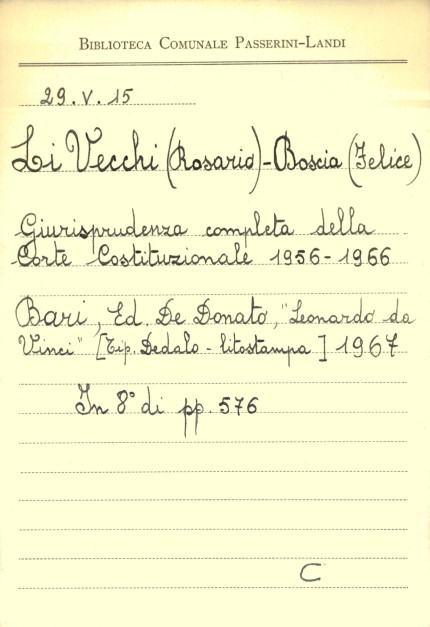 BIBLIOTECA COMUNALE PASSERINI-LANDI
29.V.15
Li Vecchi (Rosario) - Boscia (Felice)
Giurisprudenza completa della
Corte Costituzionale 1956-1966
Bari, Ed. De Donato, "Leonardo da
Vinci" [Tip. Dedalo - litostampa] 1967
In 8° di pp. 576
C